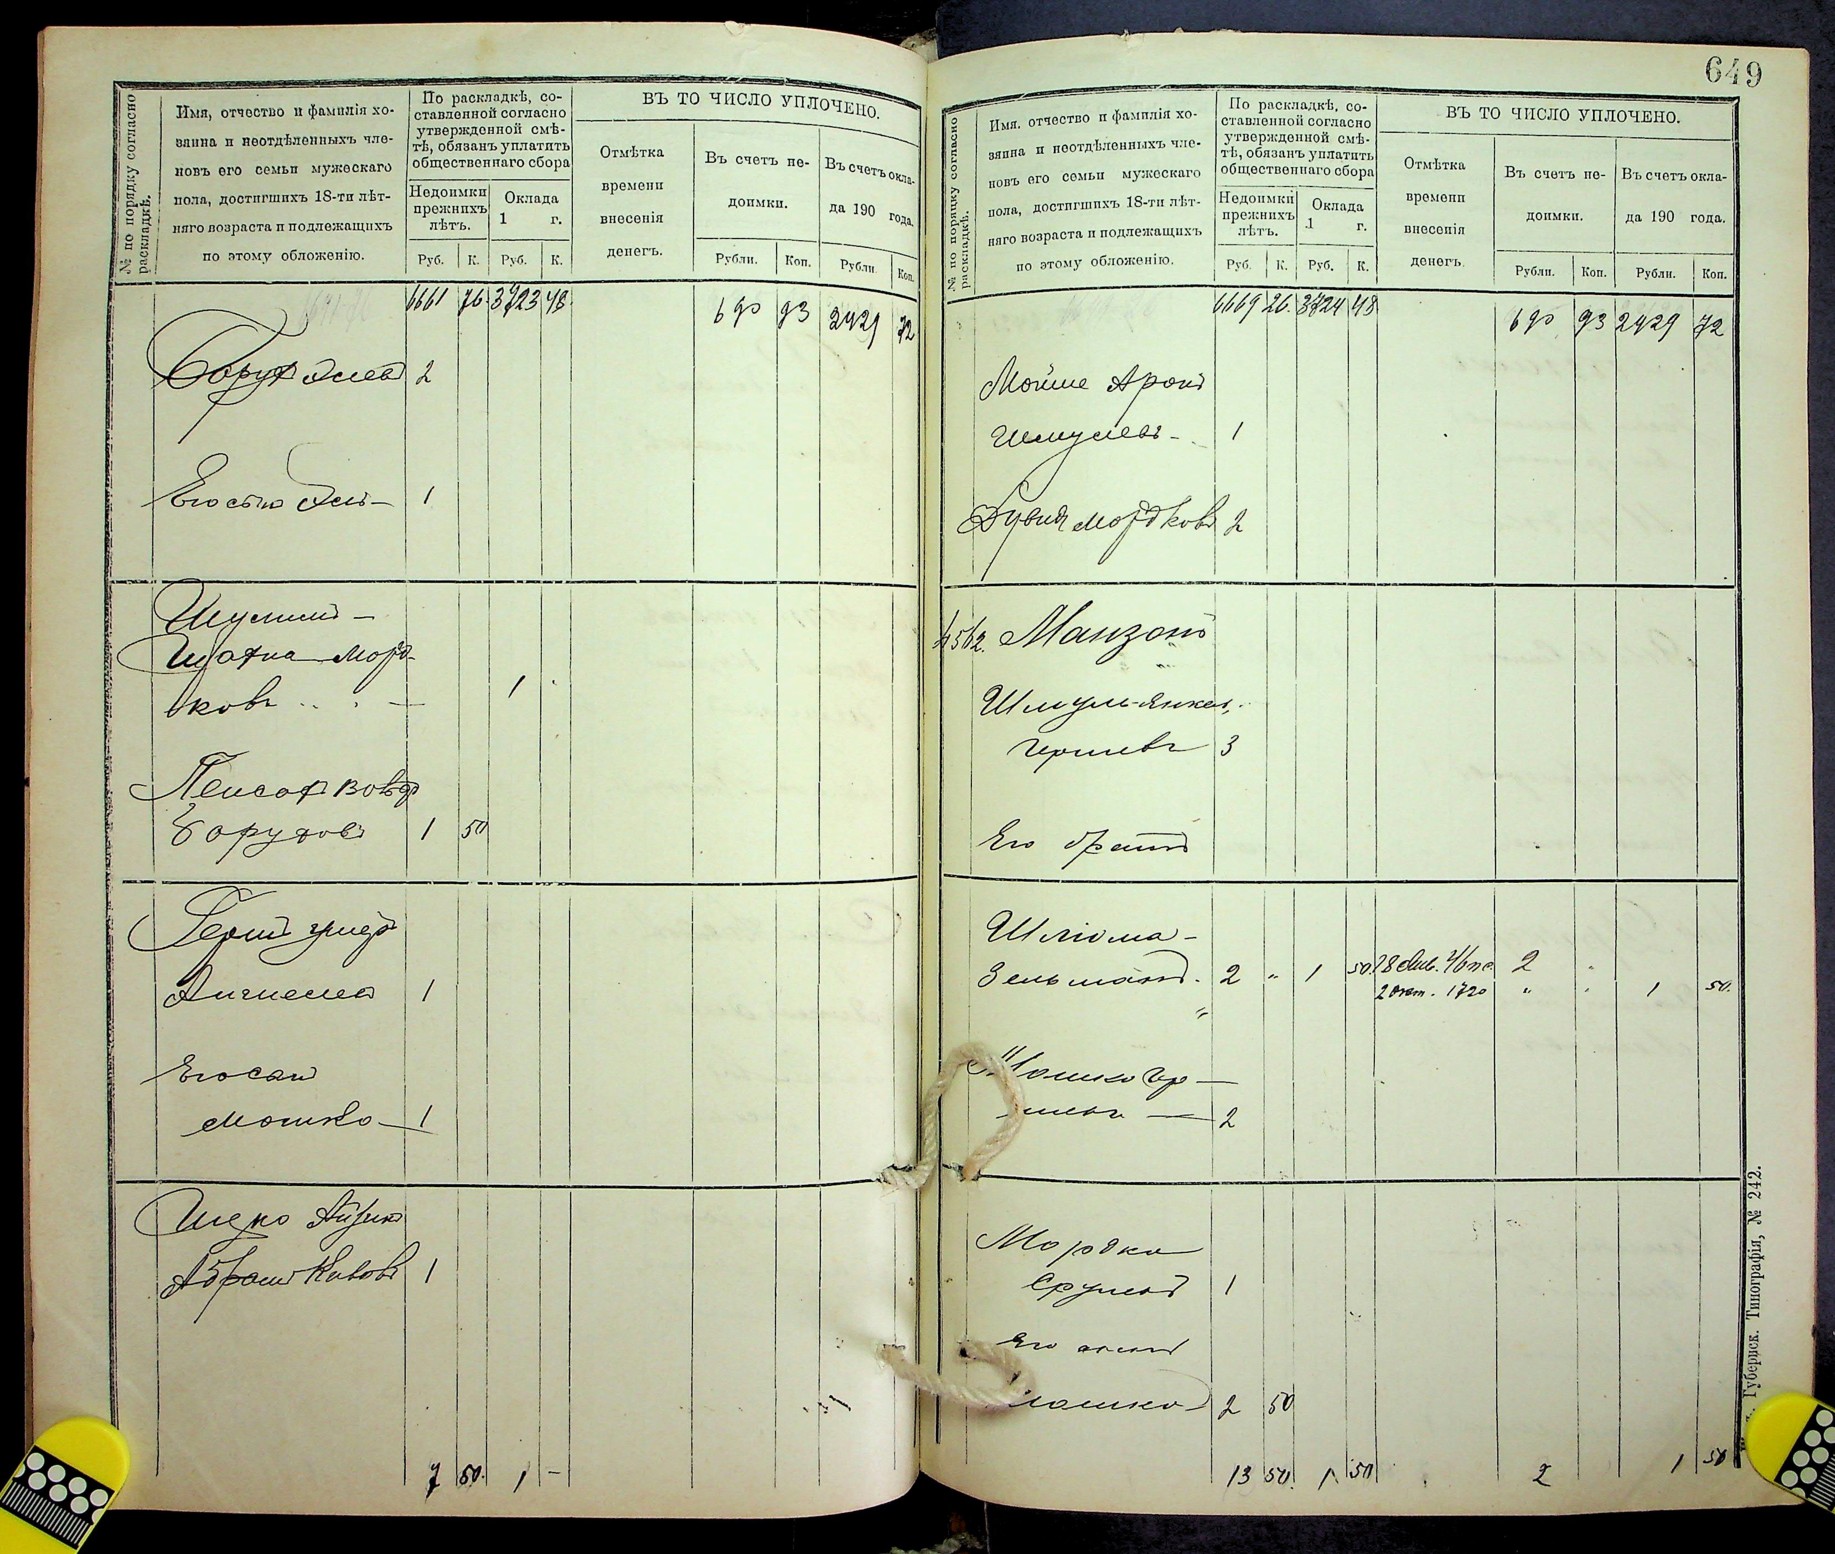 649
№ по порядку согласно раскладкѣ.
Имя, отчество и фамилія хо-
зяина и неотдѣленныхъ чле-
новъ его семьи мужескаго
пола, достигшихъ 18-ти лѣт-
няго возраста и подлежащихъ
по этому обложенію.
По раскладкѣ, со-
ставленной согласно
утвержденной смѣ-
тѣ, обязанъ уплатить
общественнаго сбора
Недоимки
прежнихъ
лѣтъ.
Оклада
1 г.
Руб. К. Руб. К.
ВЪ ТО ЧИСЛО УПЛОЧЕНО.
Отмѣтка
времени
внесенія
денегъ.
Въ счетъ не-
доимки.
Въ счетъ окла-
да 190 года.
Рубли. Коп. Рубли Коп.
6661 76 3723 48 690 93 2429 72
Борух 2
Его сынъ 1
Шулимъ -
Мор-
ковъ 1
Пейсах Вольф
Борухов 1 50
Герш
1
Его сын
Мошко 1
Айзик
Абрам 1
7 50. 1 -
№ по порядку согласно раскладкѣ.
Имя, отчество и фамилія хо-
зяина и неотдѣленныхъ чле-
новъ его семьи мужескаго
пола, достигшихъ 18-ти лѣт-
няго возраста и подлежащихъ
по этому обложенію.
По раскладкѣ, со-
ставленной согласно
утвержденной смѣ-
тѣ, обязанъ уплатить
общественнаго сбора
Недоимки
прежнихъ
лѣтъ.
Оклада
1 г.
Руб. К. Руб. К.
ВЪ ТО ЧИСЛО УПЛОЧЕНО.
Отмѣтка
времени
внесенія
денегъ.
Въ счетъ не-
доимки.
Въ счетъ окла-
да 190 года.
Рубли. Коп. Рубли. Коп.
6669 26. 3724 48 690 93 2429 72
Мойше Арон
Шмулевъ - 1
Мордковъ 2
4562. Манзонъ
Шмуль-Янкель
Гершевъ 3
Его братъ
Шлiома -
Зельманъ. 2 " 1 50. 2
2 окт. 1720 " 1 50.
Мошко Гер -
шевъ — 2
Мордко
Срулевъ 1
Его сынъ
Мошко 2 50
13 50. 1 50 2 1 50
Губернск. Типографія, № 242.